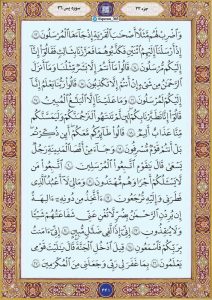 جزء ۲۲
سوره یس ۳۶
وَٱضْرِبْ لَهُم مَّثَلًا أَصْحَٰبَ ٱلْقَرْيَةِ إِذْ جَآءَهَا ٱلْمُرْسَلُونَ ١٣
إِذْ أَرْسَلْنَآ إِلَيْهِمُ ٱثْنَيْنِ فَكَذَّبُوهُمَا فَعَزَّزْنَا بِثَالِثٍ فَقَالُوٓا۟ إِنَّآ
إِلَيْكُم مُّرْسَلُونَ ١٤ قَالُوا۟ مَآ أَنتُمْ إِلَّا بَشَرٌ مِّثْلُنَا وَمَآ أَنزَلَ
ٱلرَّحْمَٰنُ مِن شَىْءٍ إِنْ أَنتُمْ إِلَّا تَكْذِبُونَ ١٥ قَالُوا۟ رَبُّنَا يَعْلَمُ إِنَّآ
إِلَيْكُمْ لَمُرْسَلُونَ ١٦ وَمَا عَلَيْنَآ إِلَّا ٱلْبَلَٰغُ ٱلْمُبِينُ ١٧
قَالُوٓا۟ إِنَّا تَطَيَّرْنَا بِكُمْ لَئِن لَّمْ تَنتَهُوا۟ لَنَرْجُمَنَّكُمْ وَلَيَمَسَّنَّكُم
مِّنَّا عَذَابٌ أَلِيمٌ ١٨ قَالُوا۟ طَٰٓئِرُكُم مَّعَكُمْ أَئِن ذُكِّرْتُم
بَلْ أَنتُمْ قَوْمٌ مُّسْرِفُونَ ١٩ وَجَآءَ مِنْ أَقْصَا ٱلْمَدِينَةِ رَجُلٌ
يَسْعَىٰ قَالَ يَٰقَوْمِ ٱتَّبِعُوا۟ ٱلْمُرْسَلِينَ ٢٠ ٱتَّبِعُوا۟ مَن
لَّا يَسْـَٔلُكُمْ أَجْرًا وَهُم مُّهْتَدُونَ ٢١ وَمَا لِىَ لَآ أَعْبُدُ ٱلَّذِى
فَطَرَنِى وَإِلَيْهِ تُرْجَعُونَ ٢٢ ءَأَتَّخِذُ مِن دُونِهِۦٓ ءَالِهَةً
إِن يُرِدْنِ ٱلرَّحْمَٰنُ بِضُرٍّ لَّا تُغْنِ عَنِّى شَفَٰعَتُهُمْ شَيْـًٔا
وَلَا يُنقِذُونِ ٢٣ إِنِّىٓ إِذًا لَّفِى ضَلَٰلٍ مُّبِينٍ ٢٤ إِنِّىٓ ءَامَنتُ
بِرَبِّكُمْ فَٱسْمَعُونِ ٢٥ قِيلَ ٱدْخُلِ ٱلْجَنَّةَ قَالَ يَٰلَيْتَ قَوْمِى
يَعْلَمُونَ ٢٦ بِمَا غَفَرَ لِى رَبِّى وَجَعَلَنِى مِنَ ٱلْمُكْرَمِينَ ٢٧
۴۴۱